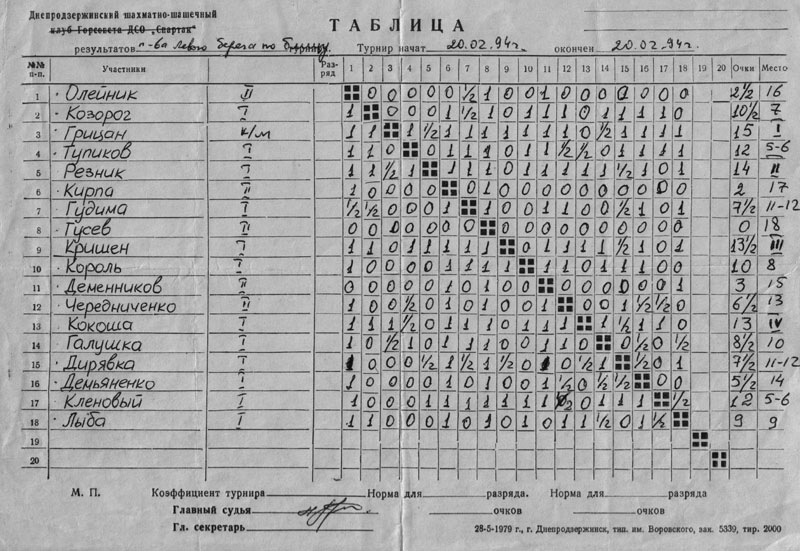 Днепродзержинский шахматно-шашечный
клуб Горсовета ДСО „Спартак"
ТАБЛИЦА
результатов п-ва левого берега по блицу Турнир начат 20.02.94г. окончен 20.02.94г.
№№ п-п. Участники Раз-ряд 1 2 3 4 5 6 7 8 9 10 11 12 13 14 15 16 17 18 19 20 Очки Место
1 Олейник II 0 0 0 0 0 ½ 1 0 0 1 0 0 0 0 0 0 0 2½ 16
2 Козорог I 1 0 0 0 1 ½ 1 0 1 1 1 0 1 1 1 1 0 10½ 7
3 Грицан к/м 1 1 1 ½ 1 1 1 1 1 1 1 0 ½ 1 1 1 1 15 I
4 Тупиков I 1 1 0 0 1 1 1 0 1 1 ½ ½ 0 1 1 1 1 12 5-6
5 Резник I 1 1 ½ 1 1 1 1 0 1 1 1 1 1 ½ 1 0 1 14 II
6 Кирпа II 1 0 0 0 0 0 1 0 0 0 0 0 0 0 0 0 0 2 17
7 Гудима I ½ ½ 0 0 0 1 1 0 0 1 1 0 0 ½ 1 0 1 7½ 11-12
8 Гусев II 0 0 0 0 0 0 0 0 0 0 0 0 0 0 0 0 0 0 18
9 Кришен I 1 1 0 1 1 1 1 1 0 1 1 1 1 ½ 1 0 1 13½ III
10 Король I 1 0 0 0 0 1 1 1 1 1 0 1 1 1 1 0 0 10 8
11 Деменников II 0 0 0 0 0 1 0 1 0 0 0 0 0 0 0 0 1 3 15
12 Чередниченко II 1 0 0 ½ 0 1 0 1 0 1 1 0 0 1 ½ ½ 0 6½ 13
13 Кокоша I 1 1 1 ½ 0 1 1 1 0 0 1 1 1 ½ 1 1 0 13 IV
14 Галушка I 1 0 ½ 1 0 1 1 1 0 0 1 1 0 0 ½ 0 ½ 8½ 10
15 Дирявка I 1 0 0 0 ½ 1 ½ 1 ½ 0 1 0 ½ 1 ½ 0 1 7½ 11-12
16 Демьяненко I 1 0 0 0 0 1 0 1 0 0 1 ½ 0 ½ ½ 0 0 5½ 14
17 Кленовый I 1 0 0 0 1 1 1 1 1 1 1 ½ 0 1 1 1 ½ 12 5-6
18 Лыба I 1 1 0 0 0 1 0 1 0 1 0 1 1 ½ 0 1 ½ 9 9
19
20
М. П. Коэффициент турнира Норма для разряда. Норма для разряда
Главный судья очков очков
Гл. секретарь 28-5-1979 г., г. Днепродзержинск, тип. им. Воровского, зак. 5339, тир. 2000